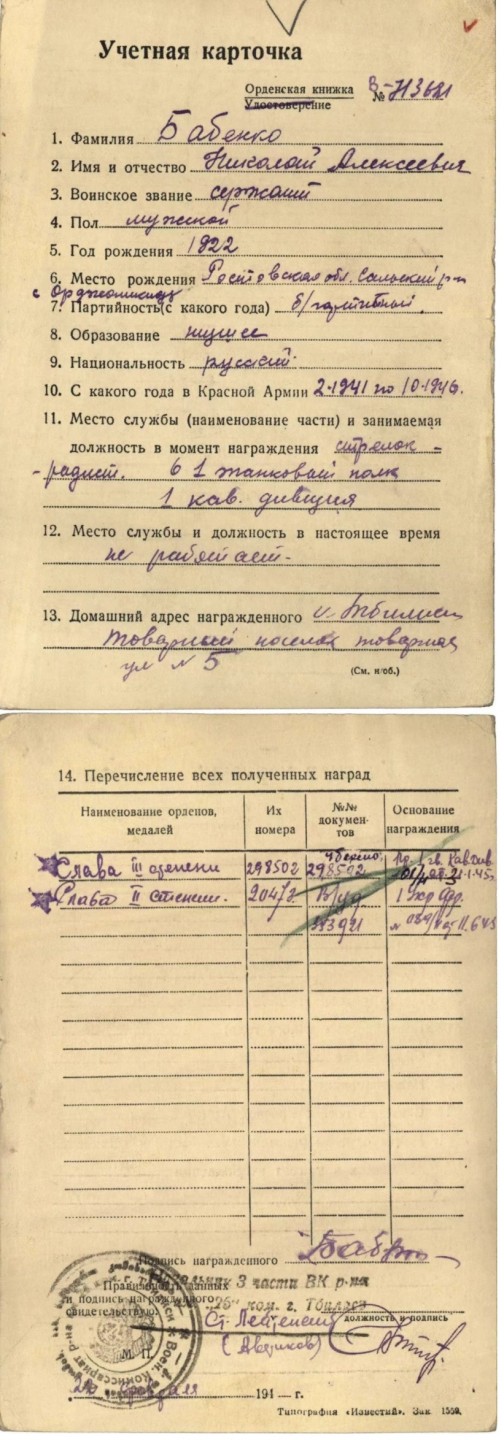 Учетная карточка
Орденская книжка
Удостоверение
№
1. Фамилия Бабенко
2. Имя и отчество Николай Алексеевич
3. Воинское звание сержант
4. Пол мужской
5. Год рождения 1922
6. Место рождения Ростовская обл. Сальский р-н
с Орджоникидзе
7. Партийность (с какого года) б/партийный.
8. Образование низшее
9. Национальность русский
10. С какого года в Красной Армии 2-1941 по 10-1946.
11. Место службы (наименование части) и занимаемая
должность в момент награждения стрелок -
- радист. 61 танковый полк
1 кав. дивизия
12. Место службы и должность в настоящее время
не работает-
13. Домашний адрес награжденного Тбилиси
Товарный поселок товарная
ул № 5
(См. н/об.)
14. Перечисление всех полученных наград
Наименование орденов, медалей
Их номера
№№ документов
Основание награждения
Слава III степени 298502 298502
Слава II степени. В/уд 1 Укр фр.
Подпись награжденного
Правильность данных
и подпись награжденного
свидетельствую:
Начальник 3 части ВК р-на
"26" ком. г. Тбилиси
Ст. Лейтенант должность и подпись
М. П.
февраля 194 — г.
Типография «Известий». Зак. 1559.